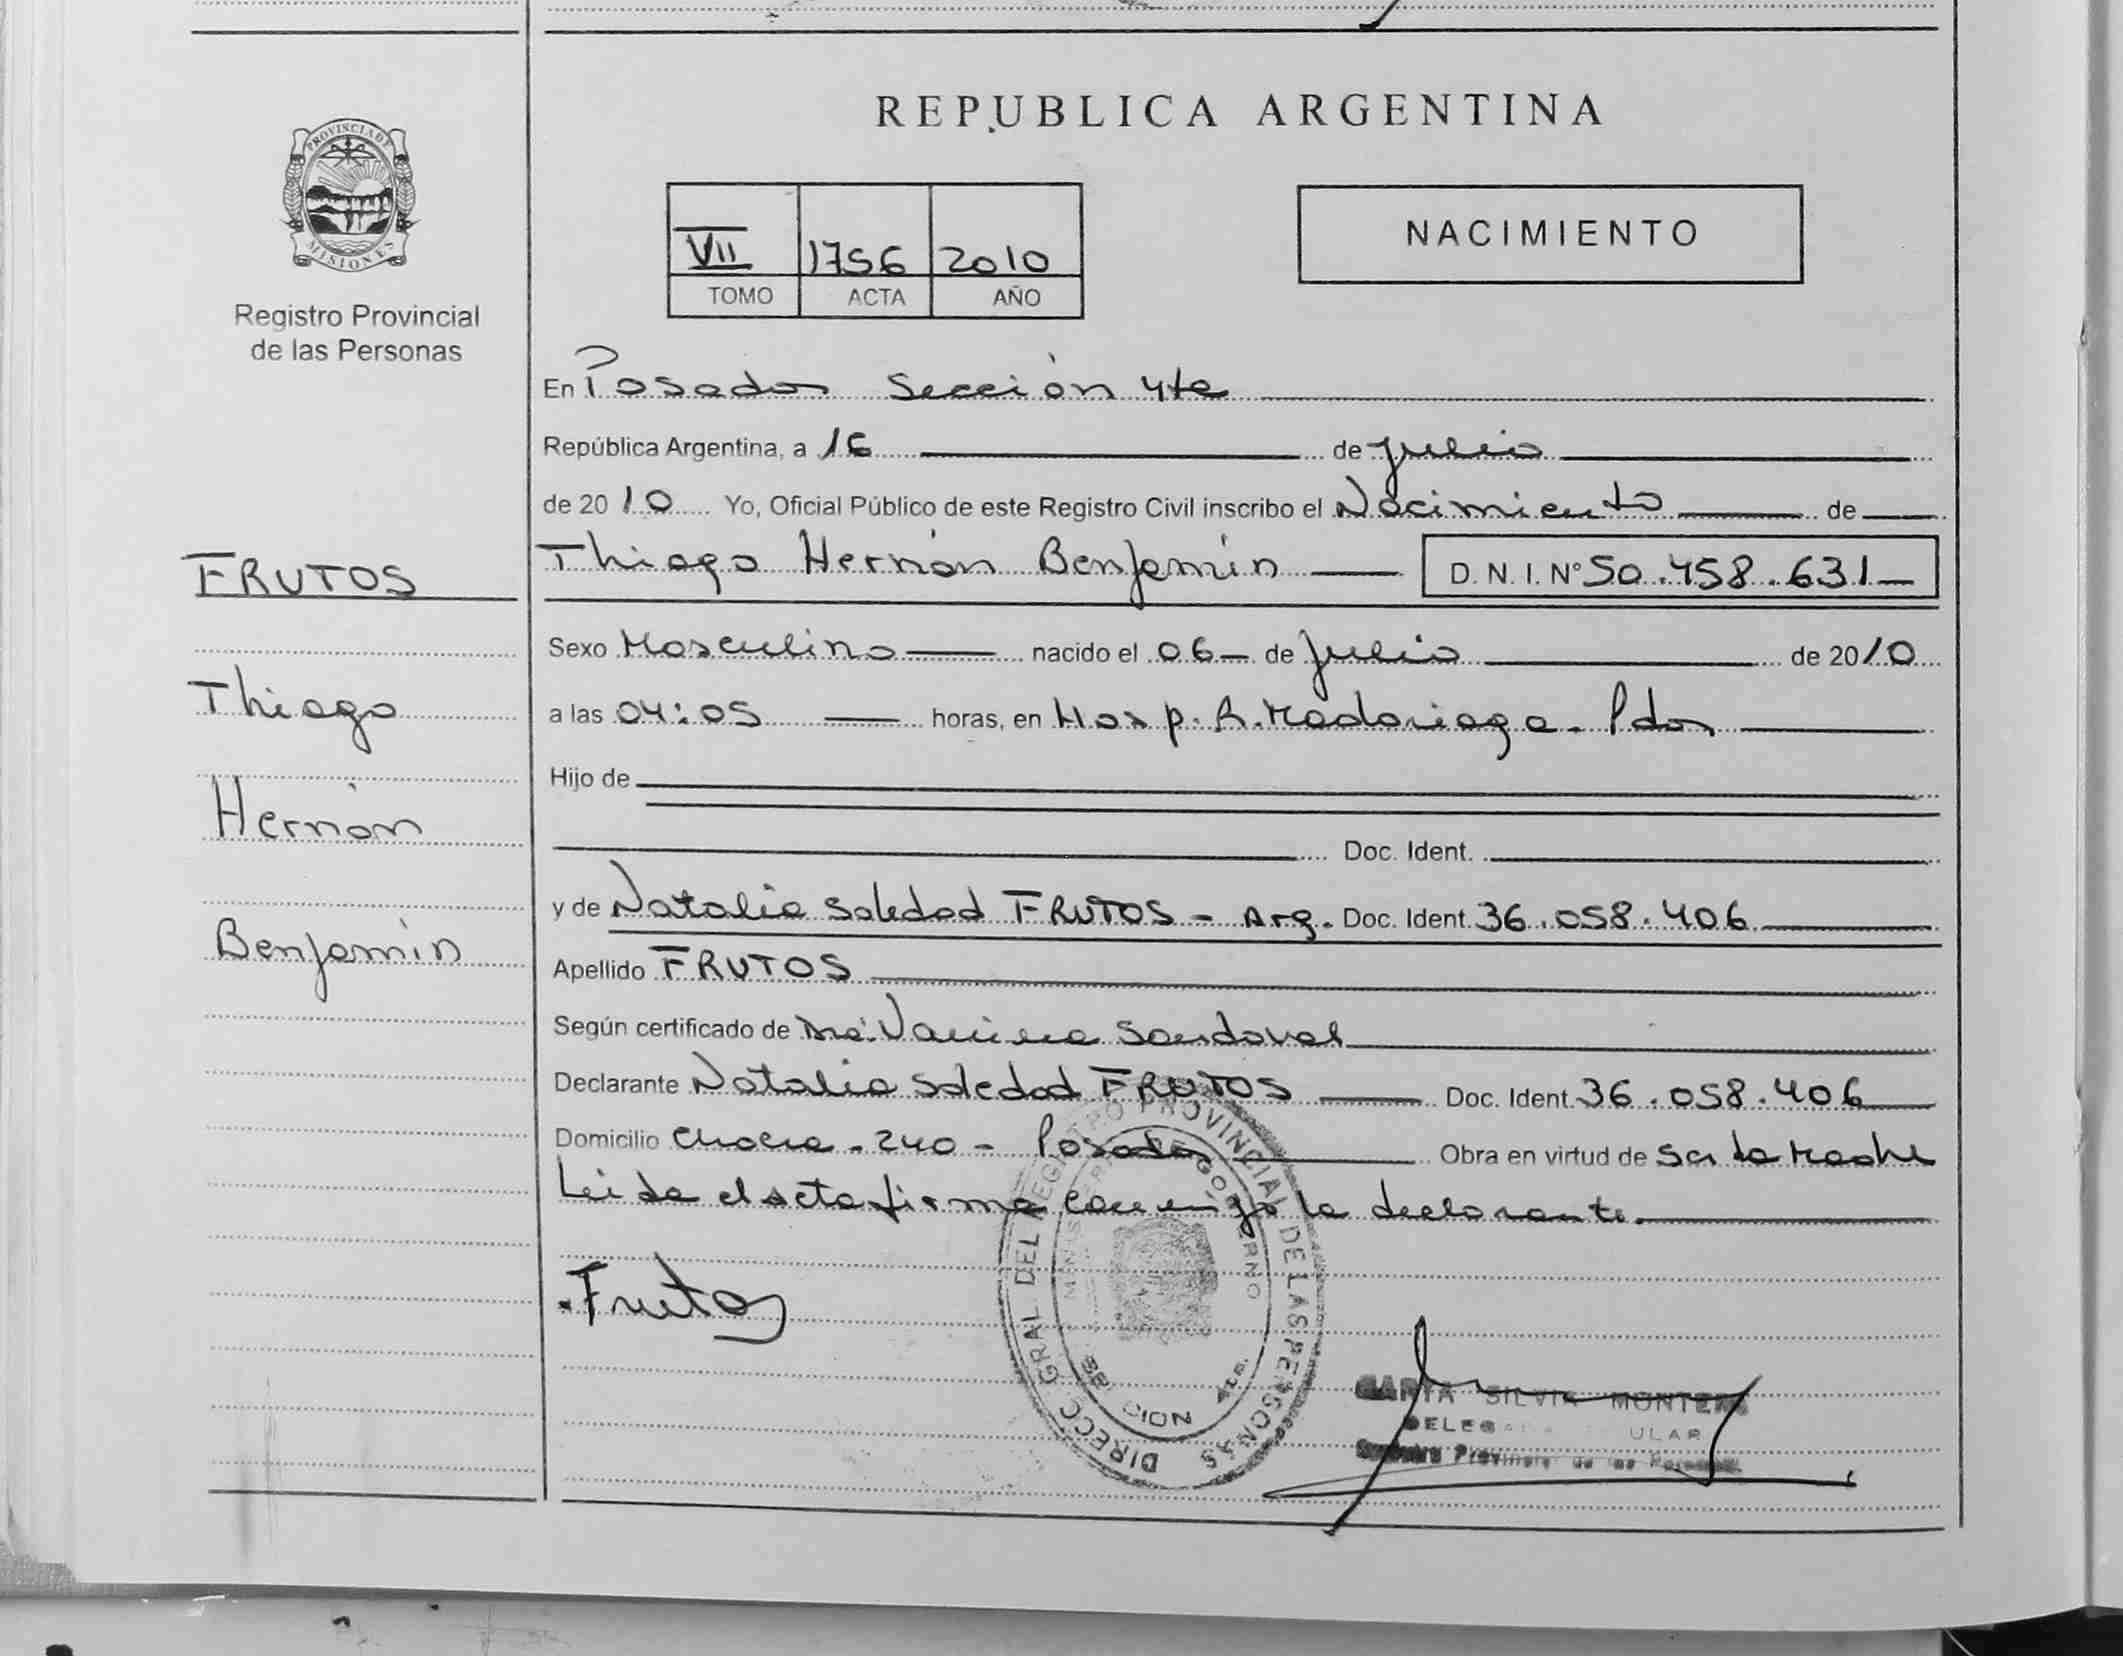 PROVINCIA DE
MISIONES
Registro Provincial
de las Personas
FRUTOS
Thiago
Hernán
Benjamín
REPUBLICA ARGENTINA
VII 1756 2010
TOMO ACTA AÑO
NACIMIENTO
En Posadas Sección 4ta
República Argentina, a 16 de Julio
de 2010 Yo, Oficial Público de este Registro Civil inscribo el Nacimiento de
Thiago Hernán Benjamín D.N.I. Nº 50.458.631
Sexo Masculino nacido el 06 de Julio de 2010
a las 04:05 horas, en Hosp. R. Madariaga. Pdas
Hijo de
Doc. Ident.
y de Natalia Soledad FRUTOS - Arg. Doc. Ident. 36.058.406
Apellido FRUTOS
Según certificado de Dra. Vanina Sandoval
Declarante Natalia Soledad FRUTOS Doc. Ident. 36.058.406
Domicilio Chacra - 240 - Posadas Obra en virtud de Ser la Madre
Leida el acta firma conmigo la declarante.
Frutos
DIRECC GRAL DEL REGISTRO PROVINCIAL DE LAS PERSONAS
GOBIERNO
4ta.
SILVIA